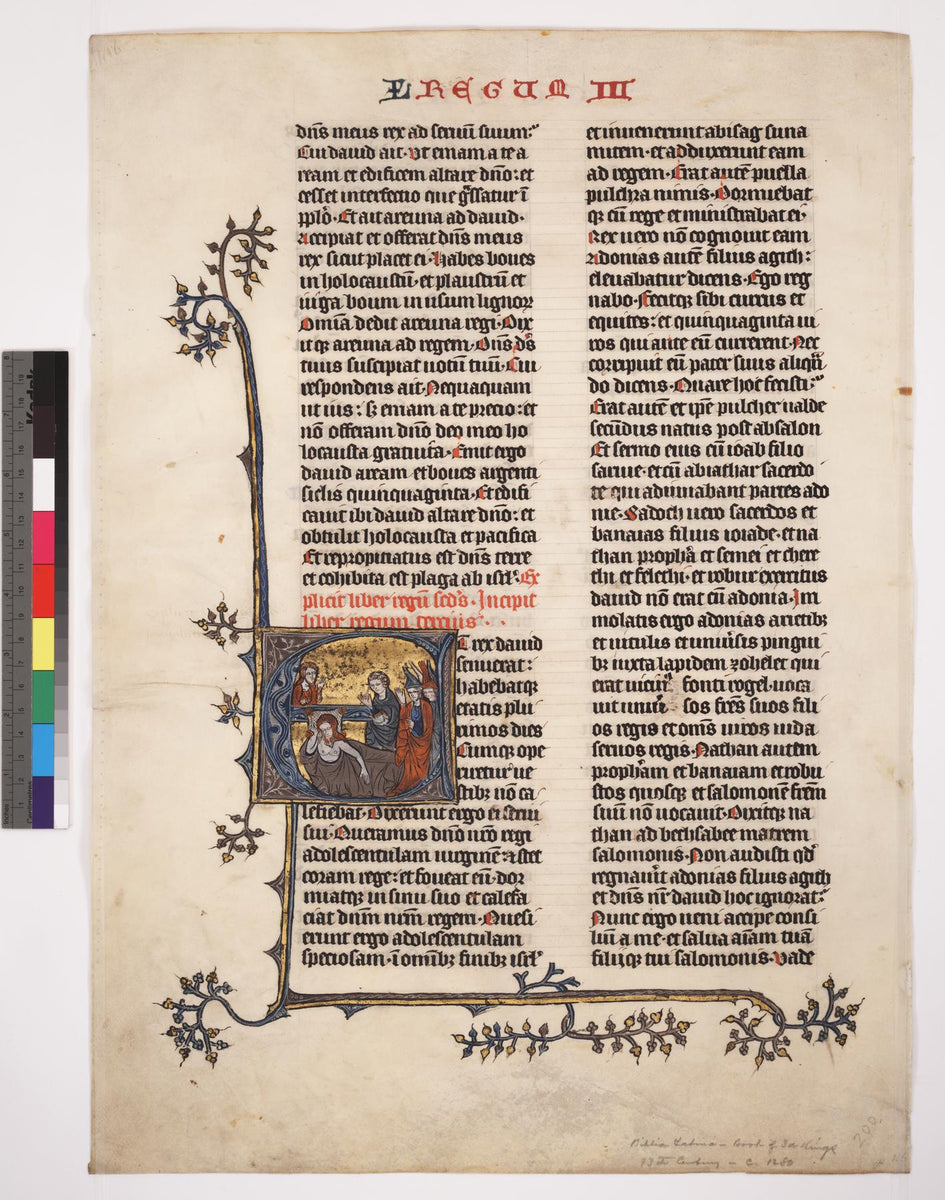 L REGUM III
dn̄s meus rex ad seruū suum:
Cui dauid ait. Vt emam a te a
ream et edificem altare dn̄o: et
cesset interfectio que g̃ssatur ī
pplō. Et ait areuna ad dauid.
Accipiat et offerat dn̄s meus
rex sicut placet ei. Habes boues
in holocaustū. et plaustrū et
iuga boum in usum lignoꝝ
Omīa dedit areuna regi. Dix
itqꝫ areuna ad regem. Dn̄s ds̄
tuus suscipiat uotū tuū. Cui
respondens ait. Nequaquam
ut uis: sꝫ emam a te precio: et
nō offeram dn̄o deo meo ho
locausta gratuita. Emit ergo
dauid aream. et boues argenti
siclis quinquaginta. Et edifi
cauit ibi dauid altare dn̄o: et
obtulit holocausta et pacifica
Et repropitiatus est dn̄s terre
et cohibita est plaga ab isrl̄. Ex
plicit liber regū scds̄. Incipit
liber regum tercius.
Et rex dauid
senuerat:
habebatqꝫ
etatis plu
rimos dies
Cumqꝫ ope
riretur ue
stibꝫ nō ca
lefiebat. Dixerunt ergo ei serui
sui. Queramus dn̄o nr̄o regi
adolescentulam uirginē: ⁊ stet
coram rege: et foueat eū. dor
miatqꝫ in sinu suo et calefa
ciat dn̄m nr̄m regem. Quesi
erunt ergo adolescentulam
speciosam. ī om̄ibꝫ finibꝫ isrl̄
et inuenerunt abisag suna
mitem. et adduxerunt eam
ad regem. Erat autē puella
pulchra nimis. Dormiebat
qꝫ cū rege et ministrabat ei.
Rex uero nō cognouit eam
Adonias autē filius agith:
eleuabatur dicens. Ego reg
nabo. Fecitqꝫ sibi currus et
equites: et quinquaginta ui
ros qui ante eū currerent. Nec
corripuit eū pater suus aliqn̄
do dicens. Quare hoc fecisti:
Erat autē et ip̄e pulcher ualde
secūdus natus post absalon
Et sermo eius cū ioab filio
saruie. et cū abiathar sacerdo
te qui adiuuabant partes ado
nie. Sadoch uero sacerdos et
banaias filius ioiade. et na
than propha̅ et semei et chere
thi et felethi. et robur exercitus
dauid nō erat cū adonia. Im
molatis ergo adonias arietibꝫ
et uitulis et uniuersis pingui
bꝫ iuxta lapidem zohelet qui
erat uicin᷒ fonti rogel. uoca
uit uniu͛sos frēs suos fili
os regis et om̄s uiros iuda
seruos regis. Nathan autem
propha̅m et banaiam et robu
stos quosqꝫ et salomonē frēm
suū nō uocauit. Dixitqꝫ na
than ad bethsabee matrem
salomonis. Non audisti qd̕
regnau͛it adonias filius agith
et dn̄s nr̄ dauid hoc ignorat:
Nunc ergo ueni accipe consi
liū a me. et salua aīam tuā
filiiqꝫ tui salomonis. Vade
Biblia Latina – Book of 3d Kings
13th Century – c. 1280
200.
Kodak